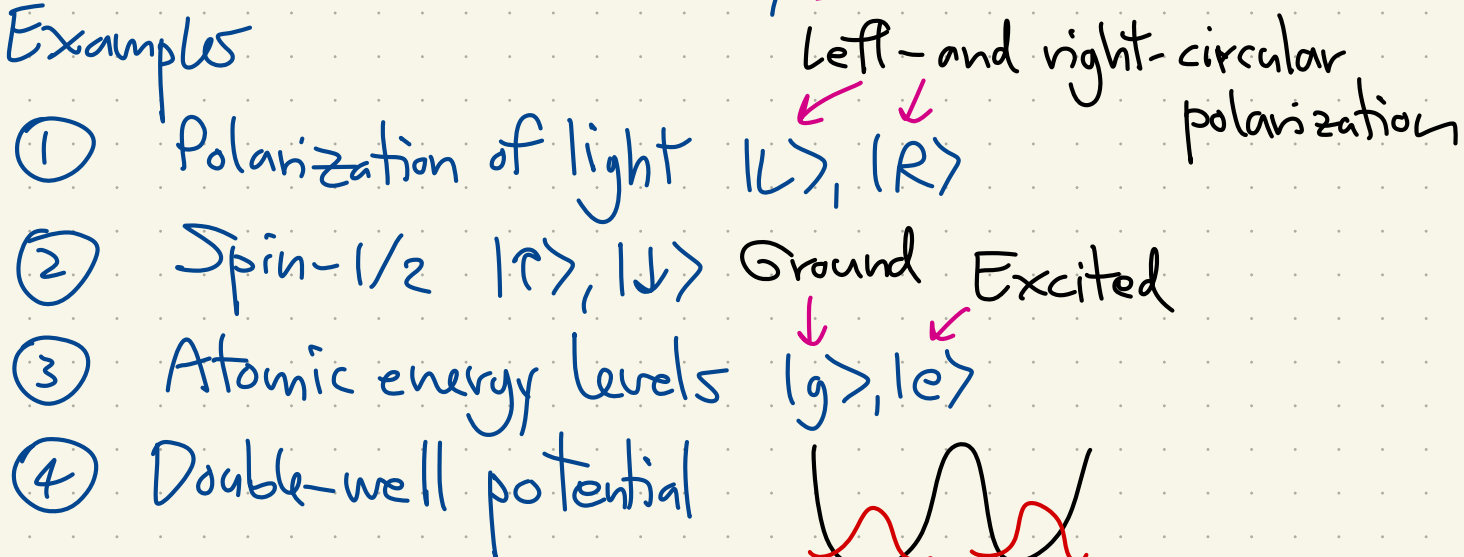 Examples
Left- and right-circular
polarization
① Polarization of light |L>, |R>
② Spin-1/2 |↑>, |↓> Ground Excited
③ Atomic energy levels |g>, |e>
④ Double-well potential